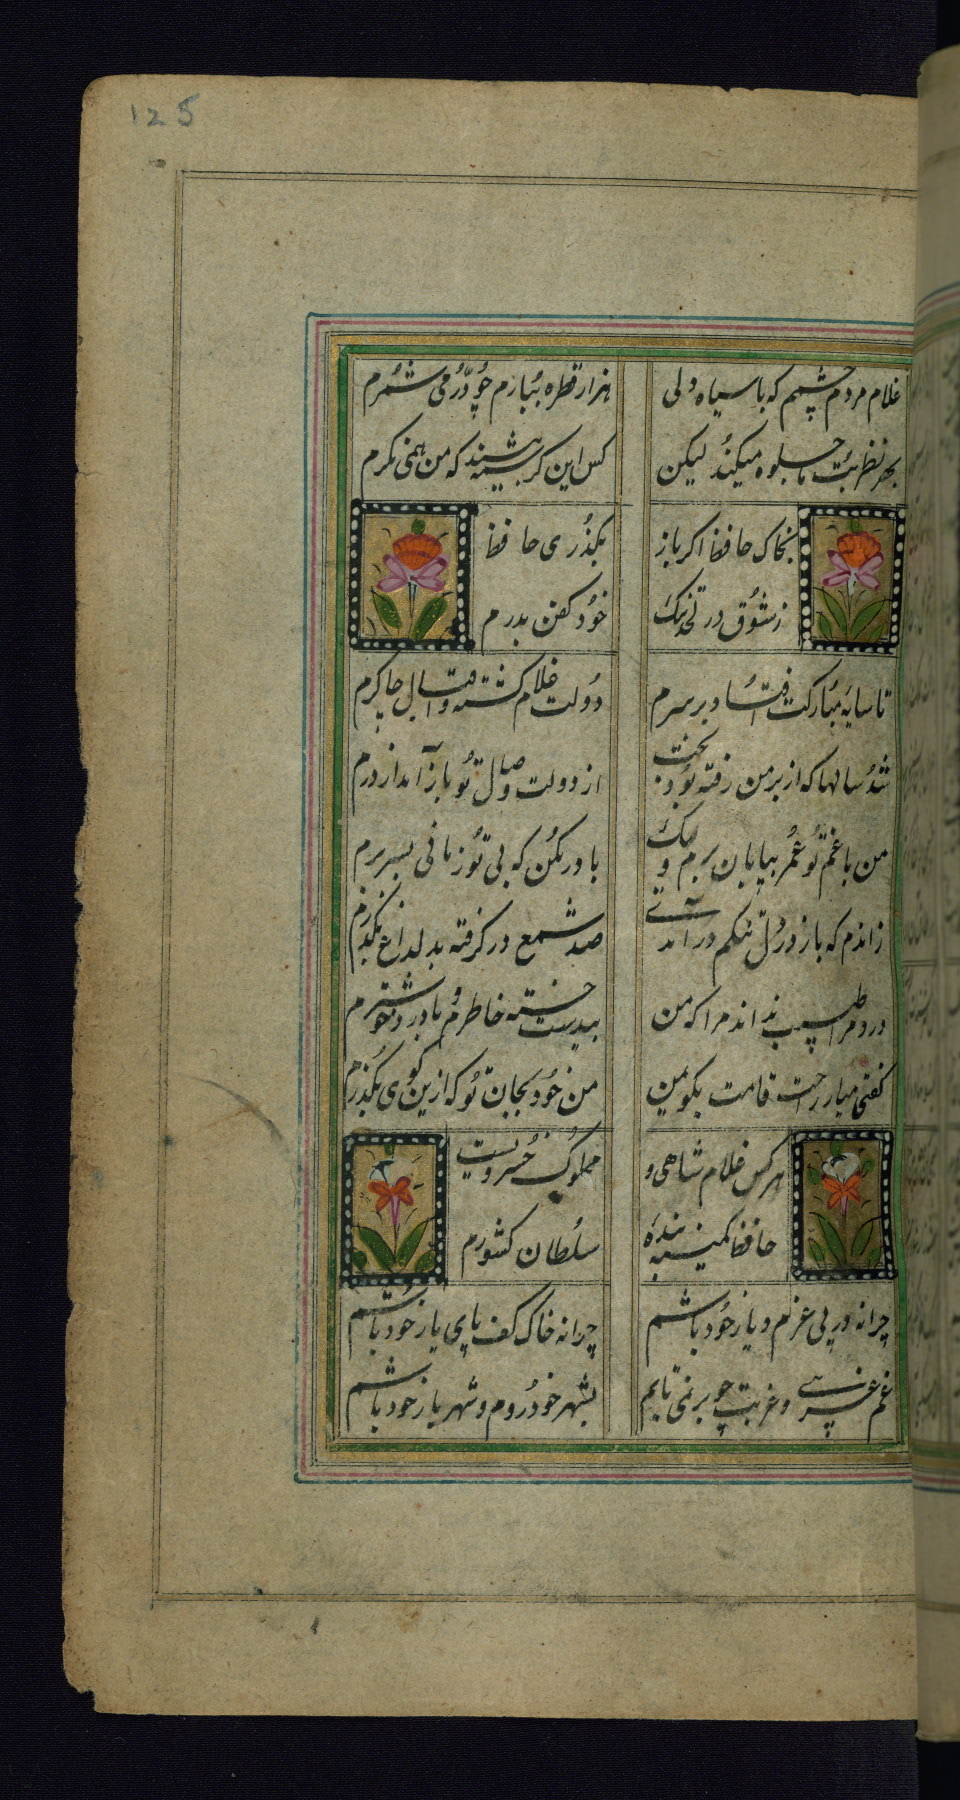 125
غلام مردم چشمم که با سیاه دلی
هزار قطره ببارم چو درد می شمرم
بهر نظر بت ما جلوه میکند لیکن
کس این کرشمه نبیند که من همی نکرم
بخاک حافظ اکر باز
بکذری حافظ
زشوق در
خود کفن بدرم
تا سایه مبارکت افتاد بر سرم
دولت غلام کشته و اقبال چاکرم
شد سالها که از بر من رفته بود بخت
از دولت وصال تو باز آمد از درم
من با غم تو عمر بپایان برم ولیک
باور مکن که بی تو زمانی بسر برم
زاندم که باز در دل تنکم در آمدی
صد شمع در کرفته بدل داغ
درد مرا طبیب نداند مرا که من
بیدوست خسته خاطرم و با درد خوشترم
کفتی میار رخت اقامت بکوی من
من خود بجان تو که ازین کوی نکذرم
هر کس غلام شاهی و
مملوک خسرویست
حافظ کمینه بنده
سلطان کشورم
چرا نه در پی عزم دیار خود باشم
چرا نه خاک کف پای یار خود باشم
غم غریبی و غربت چو بر نمی تابم
بشهر خود روم و شهریار خود باشم